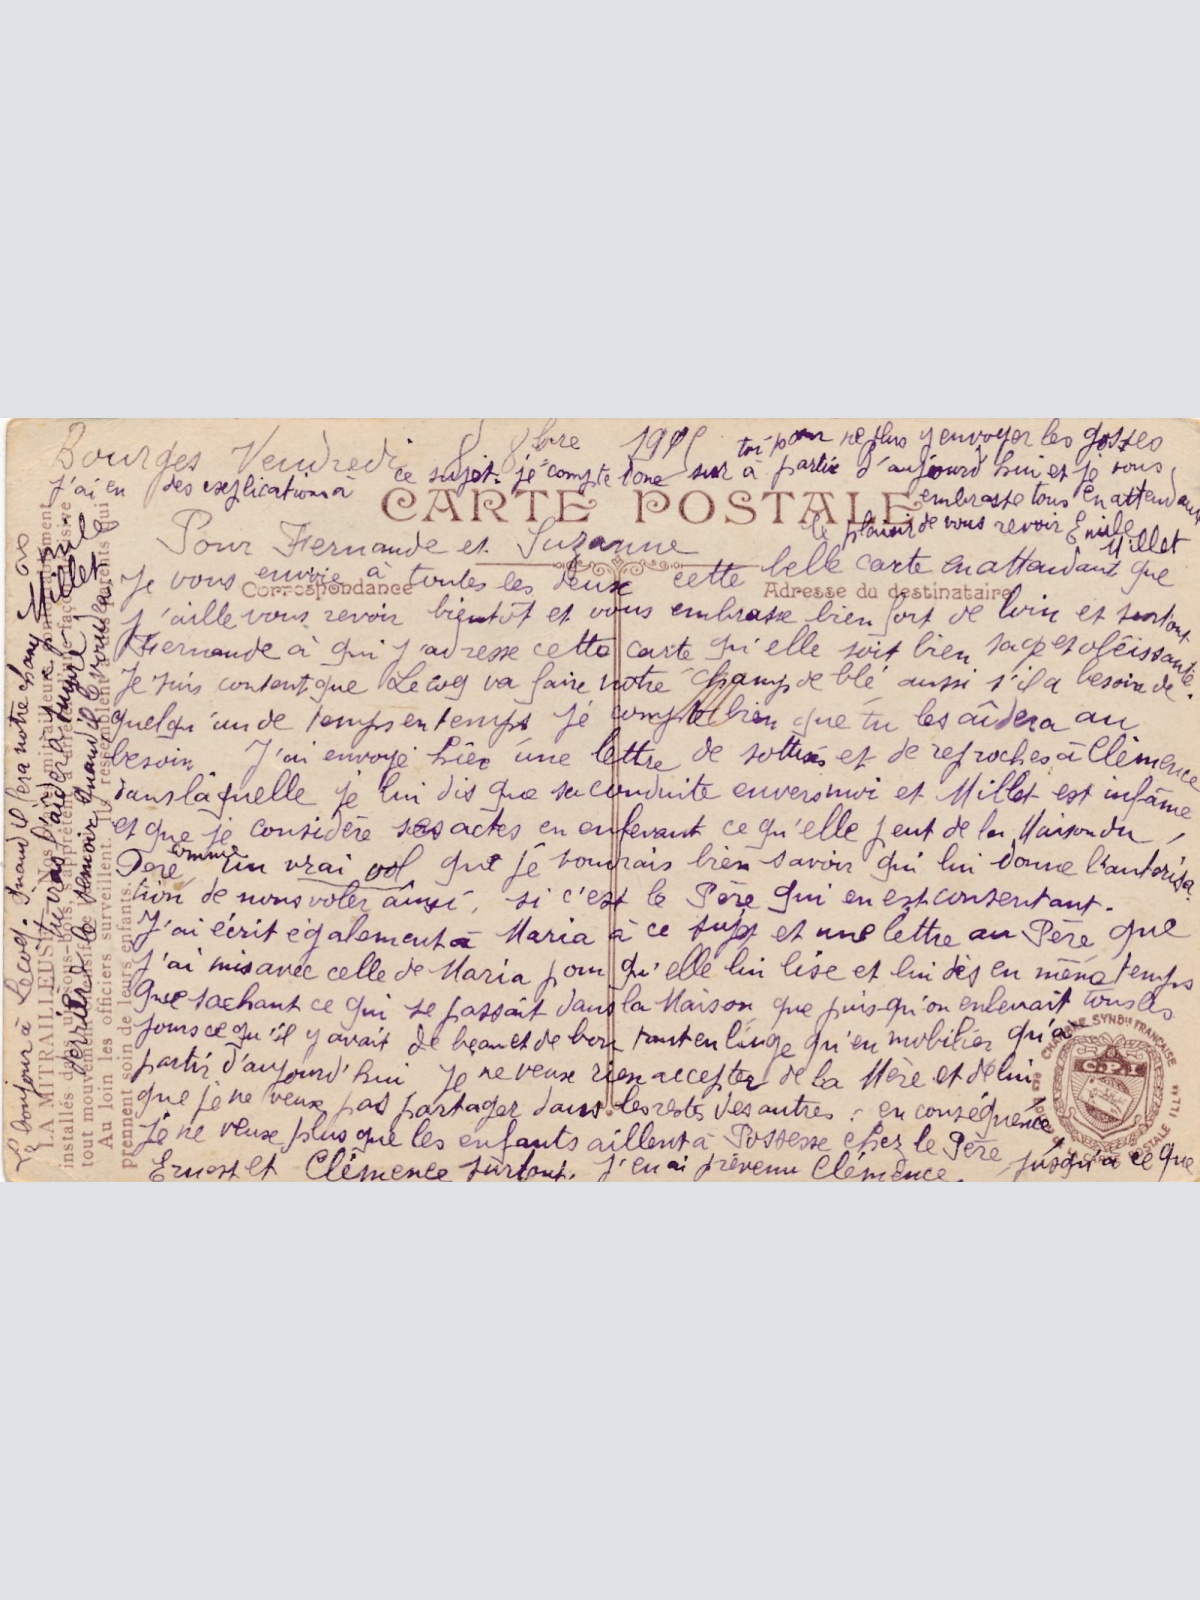 Bourges Vendredi 8 8bre 1915
Pour Fernande et Suzanne
Je vous envoie à toutes les deux cette belle carte en attendant que
j'aille vous revoir bientôt et vous embrasse bien fort de loin et surtout
Fernande à qui j'adresse cette carte qu'elle soit bien sage et obéissante.
Je suis content que Lecoq va faire notre champ de blé aussi s'il a besoin de
quelqu'un de temps en temps je compte bien que tu les aidera au
besoin J'ai envoyé hier une lettre de sottises et de reproches à Clémence
dans laquelle je lui dis que sa conduite envers moi et Millet est infâme
et que je considère ses actes en enlevant ce qu'elle peut de la Maison du
Père comme un vrai vol que je voudrais bien savoir qui lui donne l'autorisa-
tion de nous voler ainsi, si c'est le Père qui en est consentant.
J'ai écrit également à Maria à ce sujet et une lettre au Père que
j'ai mis avec celle de Maria pour qu'elle lui lise et lui dès en même temps
que sachant ce qui se passait dans la Maison que puisqu'on enlevait tous les
jours ce qu'il y avait de beau et de bon tant en linge qu'en mobilier qu'à
partir d'aujourd'hui je ne veux rien accepter de la Mère et de lui
que je ne veux pas partager dans les restes des autres. en conséquence
je ne veux plus que les enfants aillent à Possesse chez le Père
Ernest et Clémence surtout. j'en ai prévenu Clémence. jusqu'à ce que
j'ai eu des explications à ce sujet. je compte donc sur
toi pour ne plus y envoyer les gosses
à partir d'aujourd'hui et je vous
embrasse tous en attendant
le plaisir de vous revoir Emile
Millet
Le bonjour à Lecoq. Quand il fera notre champ
tu iras l'aider à
derrière le semoir quand il voudra
CARTE POSTALE
Correspondance
Adresse du destinataire
LA MITRAILLEUSE. — Nos
installés dans un sous-bois, s'apprêtent à
tout mouvement offensif
Au loin les officiers surveillent. Ils ressemblent à des parents qui
prennent soin de leurs enfants.
CHAMBRE SYND<sup>le</sup> FRANÇAISE
C.P.I
DE LA CARTE POSTALE ILL<sup>ée</sup>